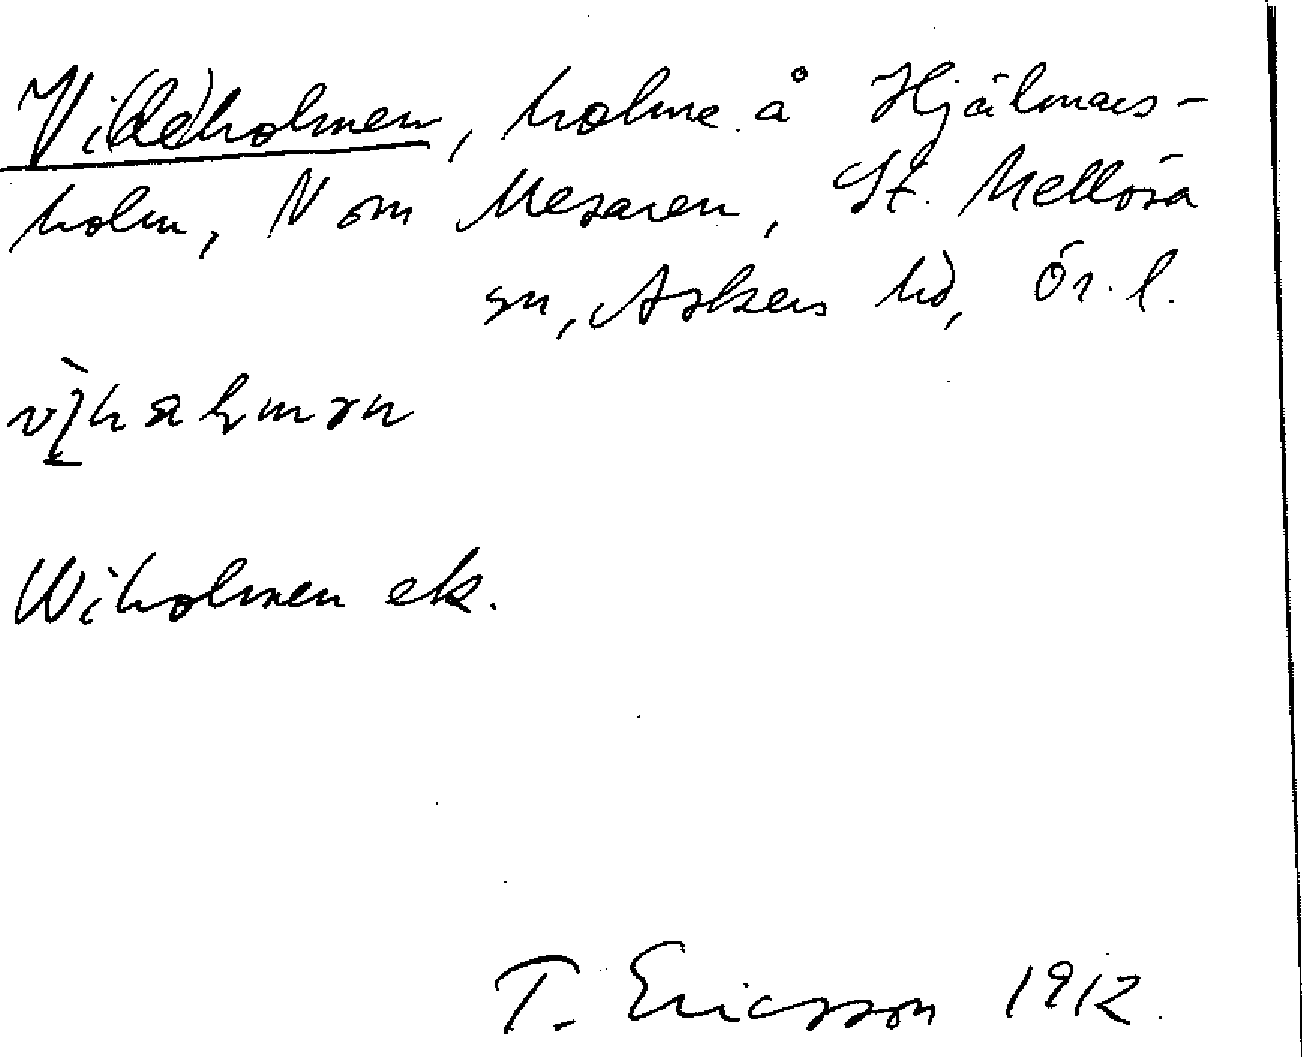 Vi(de)holmen, holme å Hjälmars-
holm, N om Mesaren, St. Mellösa
sn, Askers hd, Ör. l.
Wiholmen ek.
T. Ericsson 1912.